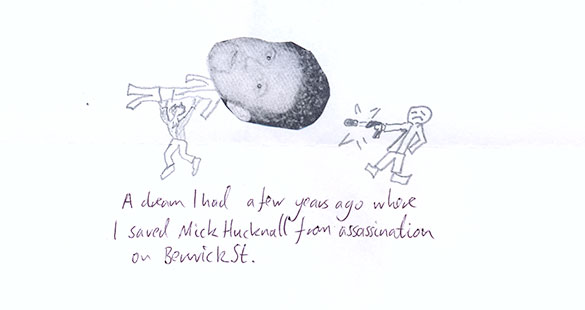 A dream I had a few years ago where
I saved Mick Hucknall from assassination
on Berwick St.